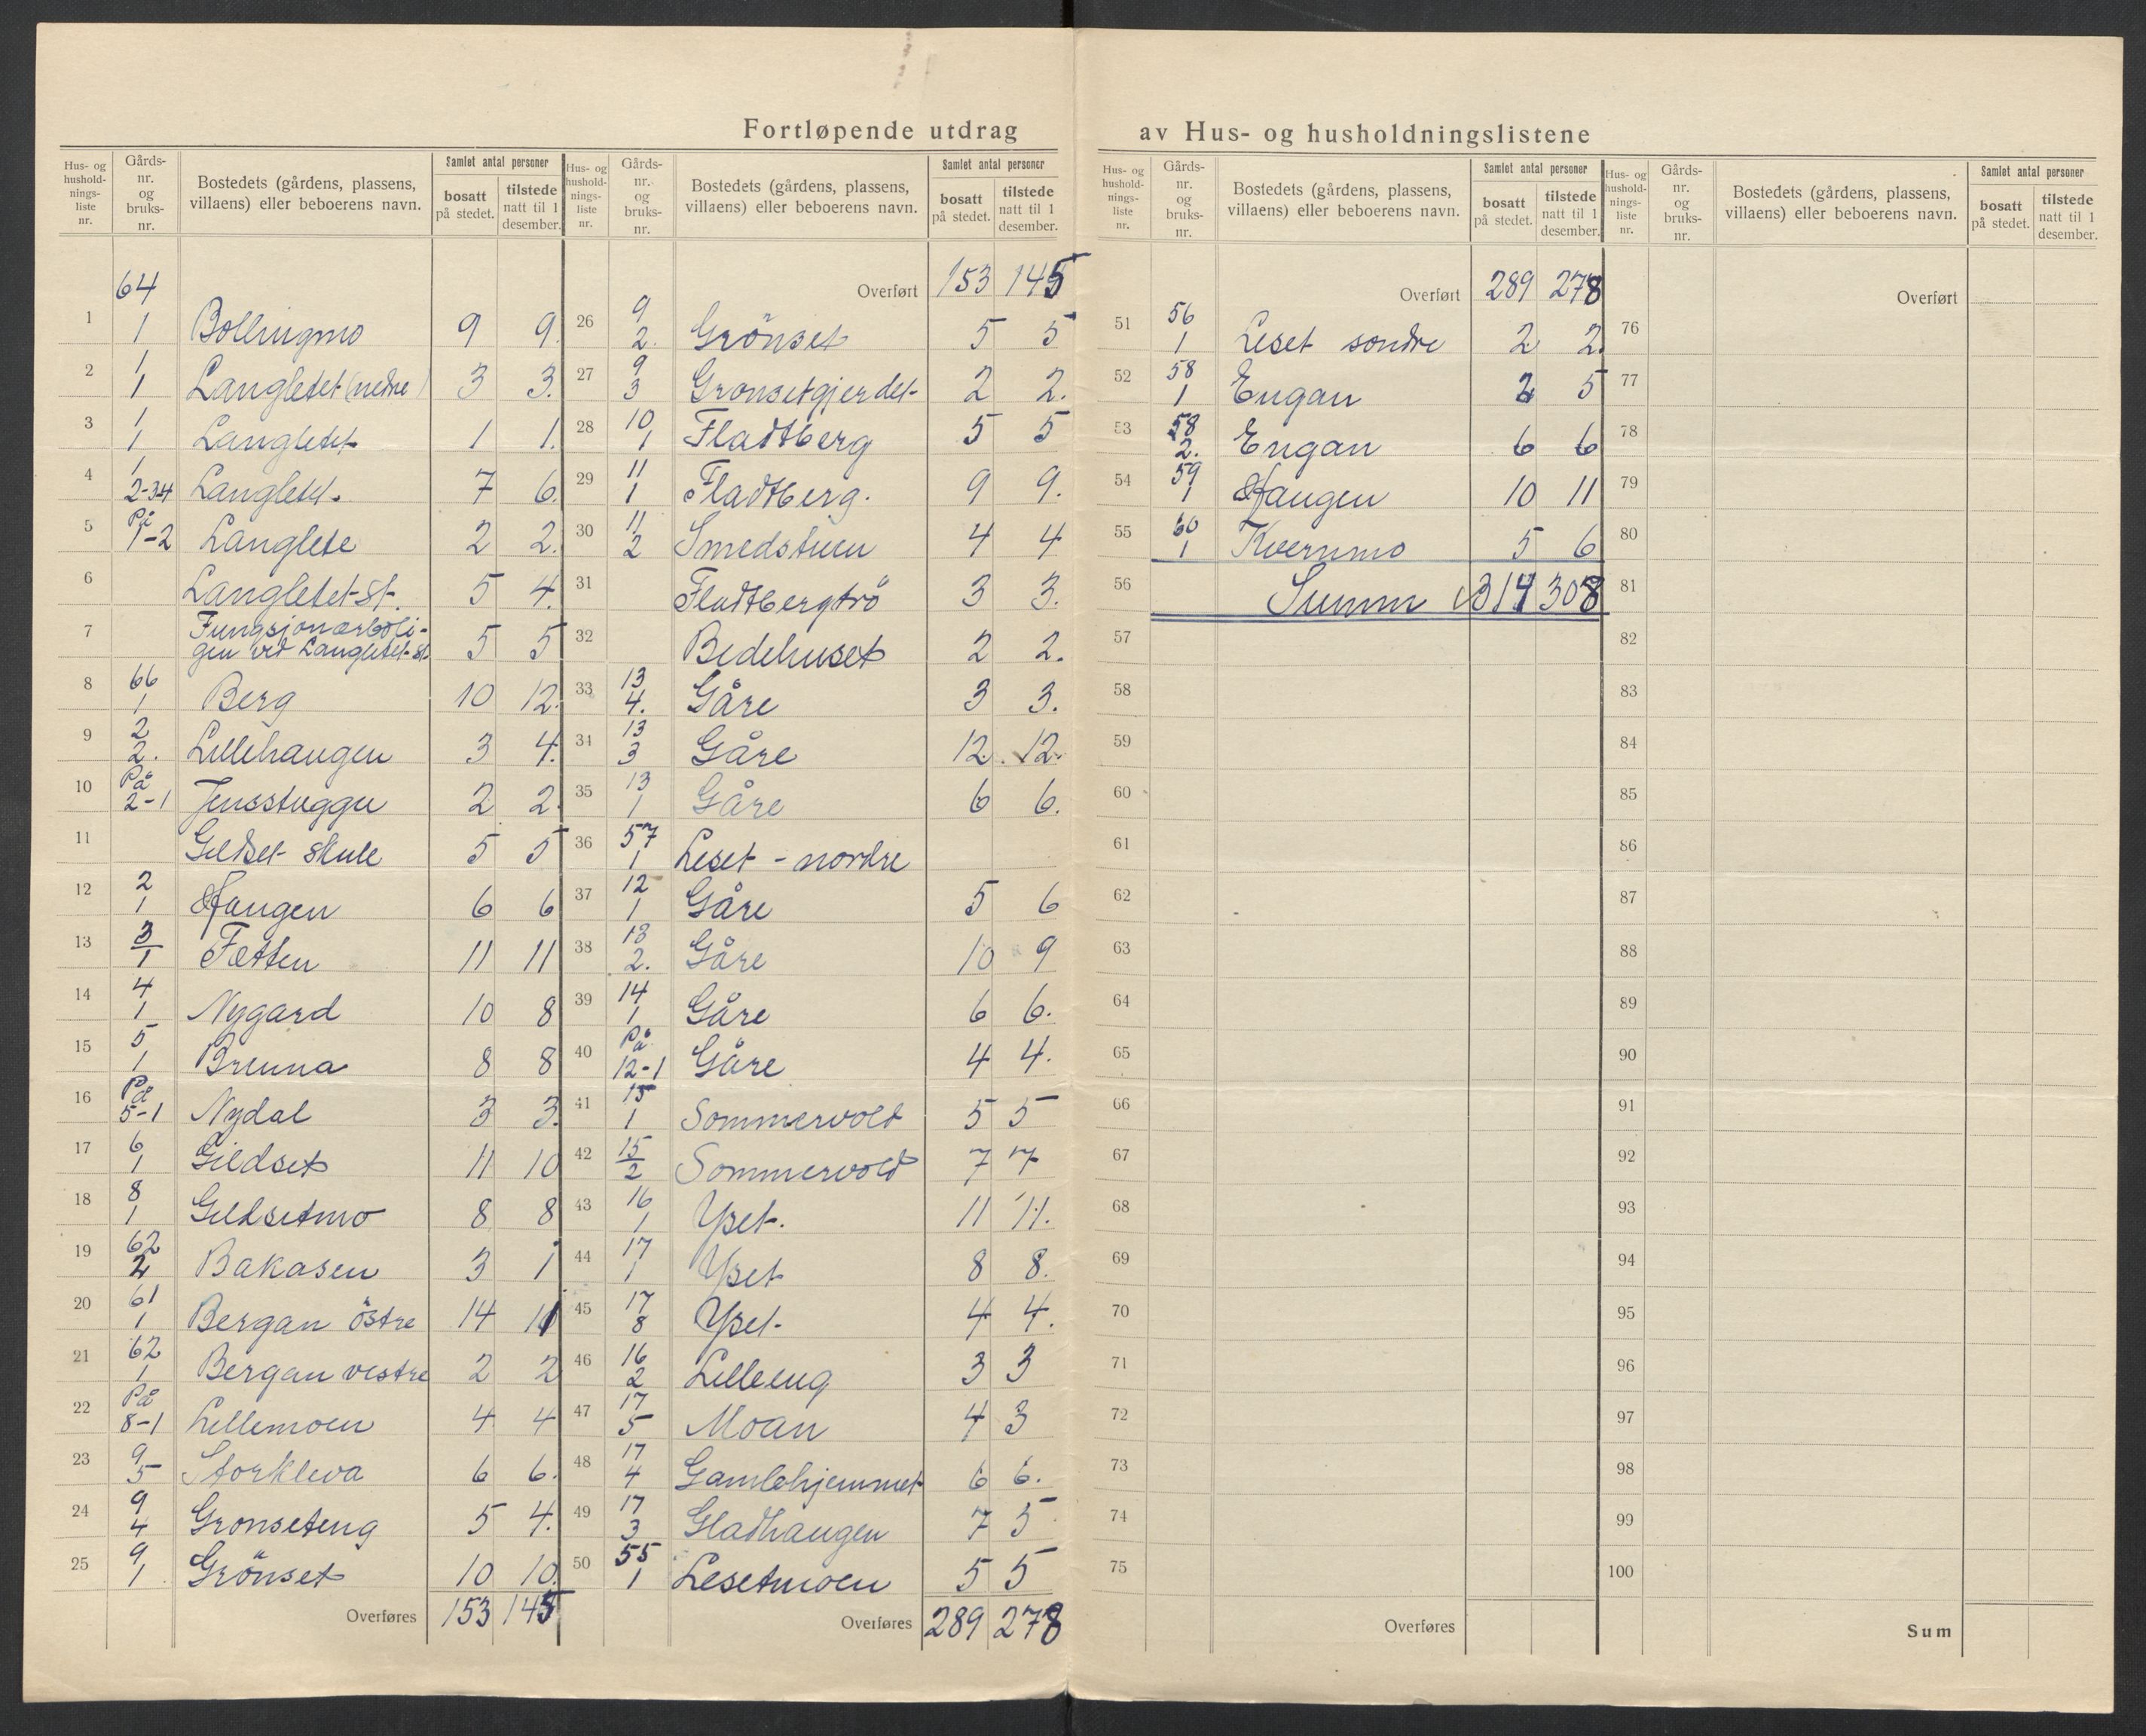 Fortløpende utdrag av Hus- og husholdningslistene
Hus- og husholdningsliste nr. | Gårdsnr. og bruksnr. | Bostedets (gårdens, plassens, villaens) eller beboerens navn. | Samlet antal personer bosatt på stedet. | tilstede natt til 1 desember.
1 | 64 1 | Bollingmo | 9 | 9.
2 | 1 1 | Langletet (nedre) | 3 | 3.
3 | 1 1 | Langletet | 1 | 1.
4 | 1 2-3-4 | Langletet. | 7 | 6.
5 | På 1-2 | Langlete | 2 | 2.
6 | Langletet-St. | 5 | 4.
7 | Fungsjonærboli-
gen ved Langletet-st | 5 | 5
8 | 66 1 | Berg | 10 | 12.
9 | 2 2. | Lillehaugen | 3 | 4.
10 | På 2-1 | Jensstuggu | 2 | 2.
11 | Gildset skule | 5 | 5
12 | 2 1 | Haugen | 6 | 6
13 | 3 1 | Fætten | 11 | 11
14 | 4 1 | Nygard | 10 | 8
15 | 5 1 | Brenna | 8 | 8
16 | På 5-1 | Nydal | 3 | 3.
17 | 6 1 | Gildset | 11 | 10
18 | 8 1 | Gildsetmo | 8 | 8
19 | 62 2 | Bakåsen | 3 | 1
20 | 61 1 | Bergan östre | 14 | 11
21 | 62 1 | Bergan vestre | 2 | 2
22 | På 8-1 | Lillemoen | 4 | 4
23 | 9 5 | Storkleva | 6 | 6.
24 | 9 4 | Gronseteng | 5 | 4.
25 | 9 1 | Grönset | 10 | 10.
Overføres | 153 | 145
Hus- og husholdningsliste nr. | Gårdsnr. og bruksnr. | Bostedets (gårdens, plassens, villaens) eller beboerens navn. | Samlet antal personer bosatt på stedet. | tilstede natt til 1 desember.
Overført | 153 | 145
26 | 9 2. | Grönset | 5 | 5
27 | 9 3 | Gronsetgjerdet | 2 | 2.
28 | 10 1 | Fladtberg | 5 | 5
29 | 11 1 | Fladtberg. | 9 | 9.
30 | 11 2 | Smedstuen | 4 | 4
31 | Fladtbergtrö | 3 | 3.
32 | Bedehuset | 2 | 2.
33 | 13 4. | Gåre | 3 | 3.
34 | 13 3 | Gåre | 12. | 12.
35 | 13 1 | Gåre | 6 | 6.
36 | 57 1 | Leset - nordre
37 | 12 1 | Gåre | 5 | 6
38 | 13 2. | Gåre | 10 | 9
39 | 14 1 | Gåre | 6 | 6.
40 | På 12-1 | Gåre | 4 | 4.
41 | 15 1 | Sommervold | 5 | 5
42 | 15 2 | Sommervold | 7 | 7
43 | 16 1 | Yset. | 11 | 11.
44 | 17 1 | Yset | 8 | 8.
45 | 17 8 | Yset | 4 | 4.
46 | 16 2 | Lilleeng | 3 | 3
47 | 17 5 | Moan | 4 | 3
48 | 17 4 | Gamlehjemmet | 6 | 6.
49 | 17 3 | Gladhaugen | 7 | 5
50 | 55 1 | Lesetmoen | 5 | 5
Overføres | 289 | 278
Hus- og husholdningsliste nr. | Gårdsnr. og bruksnr. | Bostedets (gårdens, plassens, villaens) eller beboerens navn. | Samlet antal personer bosatt på stedet. | tilstede natt til 1 desember.
Overført | 289 | 278
51 | 56 1 | Leset sondre | 2 | 2.
52 | 58 1 | Engan | 2 | 5
53 | 58 2. | Engan | 6 | 6
54 | 59 1 | Haugen | 10 | 11
55 | 60 1 | Kvernmo | 5 | 6
56 | Summ | 314 | 308
57
58
59
60
61
62
63
64
65
66
67
68
69
70
71
72
73
74
75
Overføres
Hus- og husholdningsliste nr. | Gårdsnr. og bruksnr. | Bostedets (gårdens, plassens, villaens) eller beboerens navn. | Samlet antal personer bosatt på stedet. | tilstede natt til 1 desember.
Overført
76
77
78
79
80
81
82
83
84
85
86
87
88
89
90
91
92
93
94
95
96
97
98
99
100
Sum